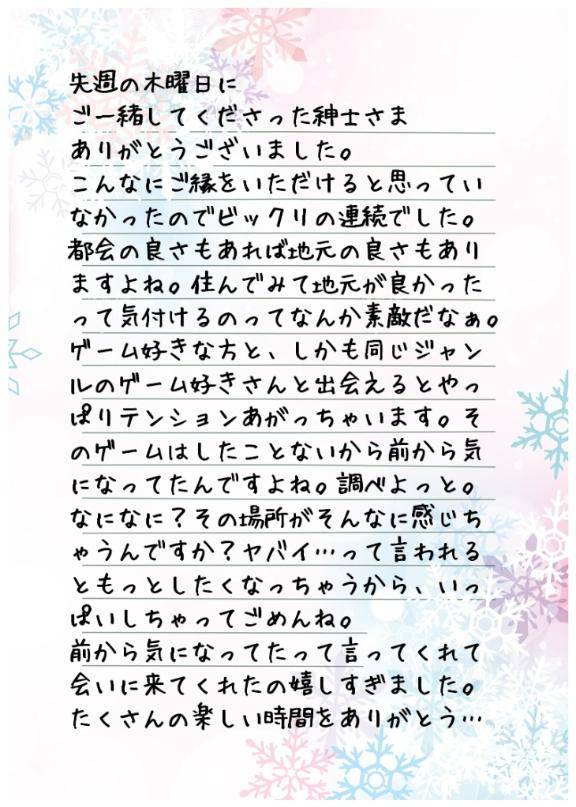 先週の木曜日に
ご一緒してくださった紳士さま
ありがとうございました。
こんなにご縁をいただけると思ってい
なかったのでビックリの連続でした。
都会の良さもあれば地元の良さもあり
ますよね。住んでみて地元が良かった
って気付けるのってなんか素敵だなぁ。
ゲーム好きな方と、しかも同じジャン
ルのゲーム好きさんと出会えるとやっ
ぱりテンションあがっちゃいます。そ
のゲームはしたことないから前から気
になってたんですよね。調べよっと。
なになに？その場所がそんなに感じち
ゃうんですか？ヤバイ…って言われる
ともっとしたくなっちゃうから、いっ
ぱいしちゃってごめんね。
前から気になってたって言ってくれて
会いに来てくれたの嬉しすぎました。
たくさんの楽しい時間をありがとう…